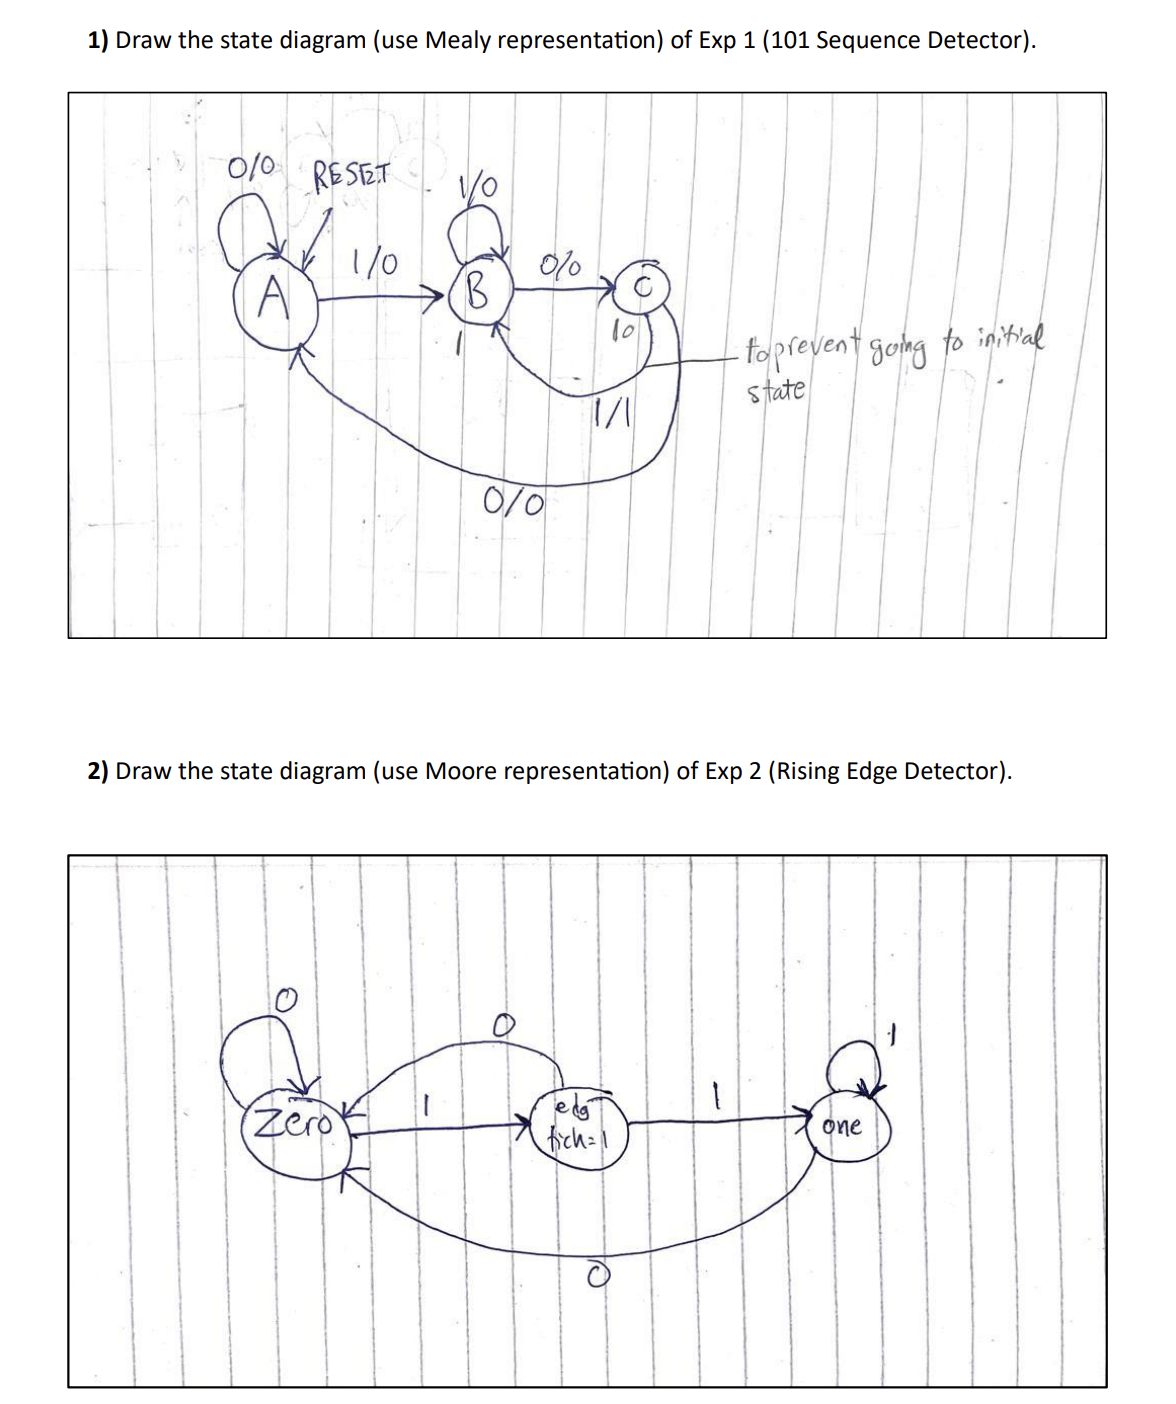 1) Draw the state diagram (use Mealy representation) of Exp 1 (101 Sequence Detector).
0/0 RESET 1/0
1/0 0/0
A B C
1 10
to prevent going to initial
state
1/1
0/0
2) Draw the state diagram (use Moore representation) of Exp 2 (Rising Edge Detector).
0
0 1
1 1
Zero edg one
tick=1
0